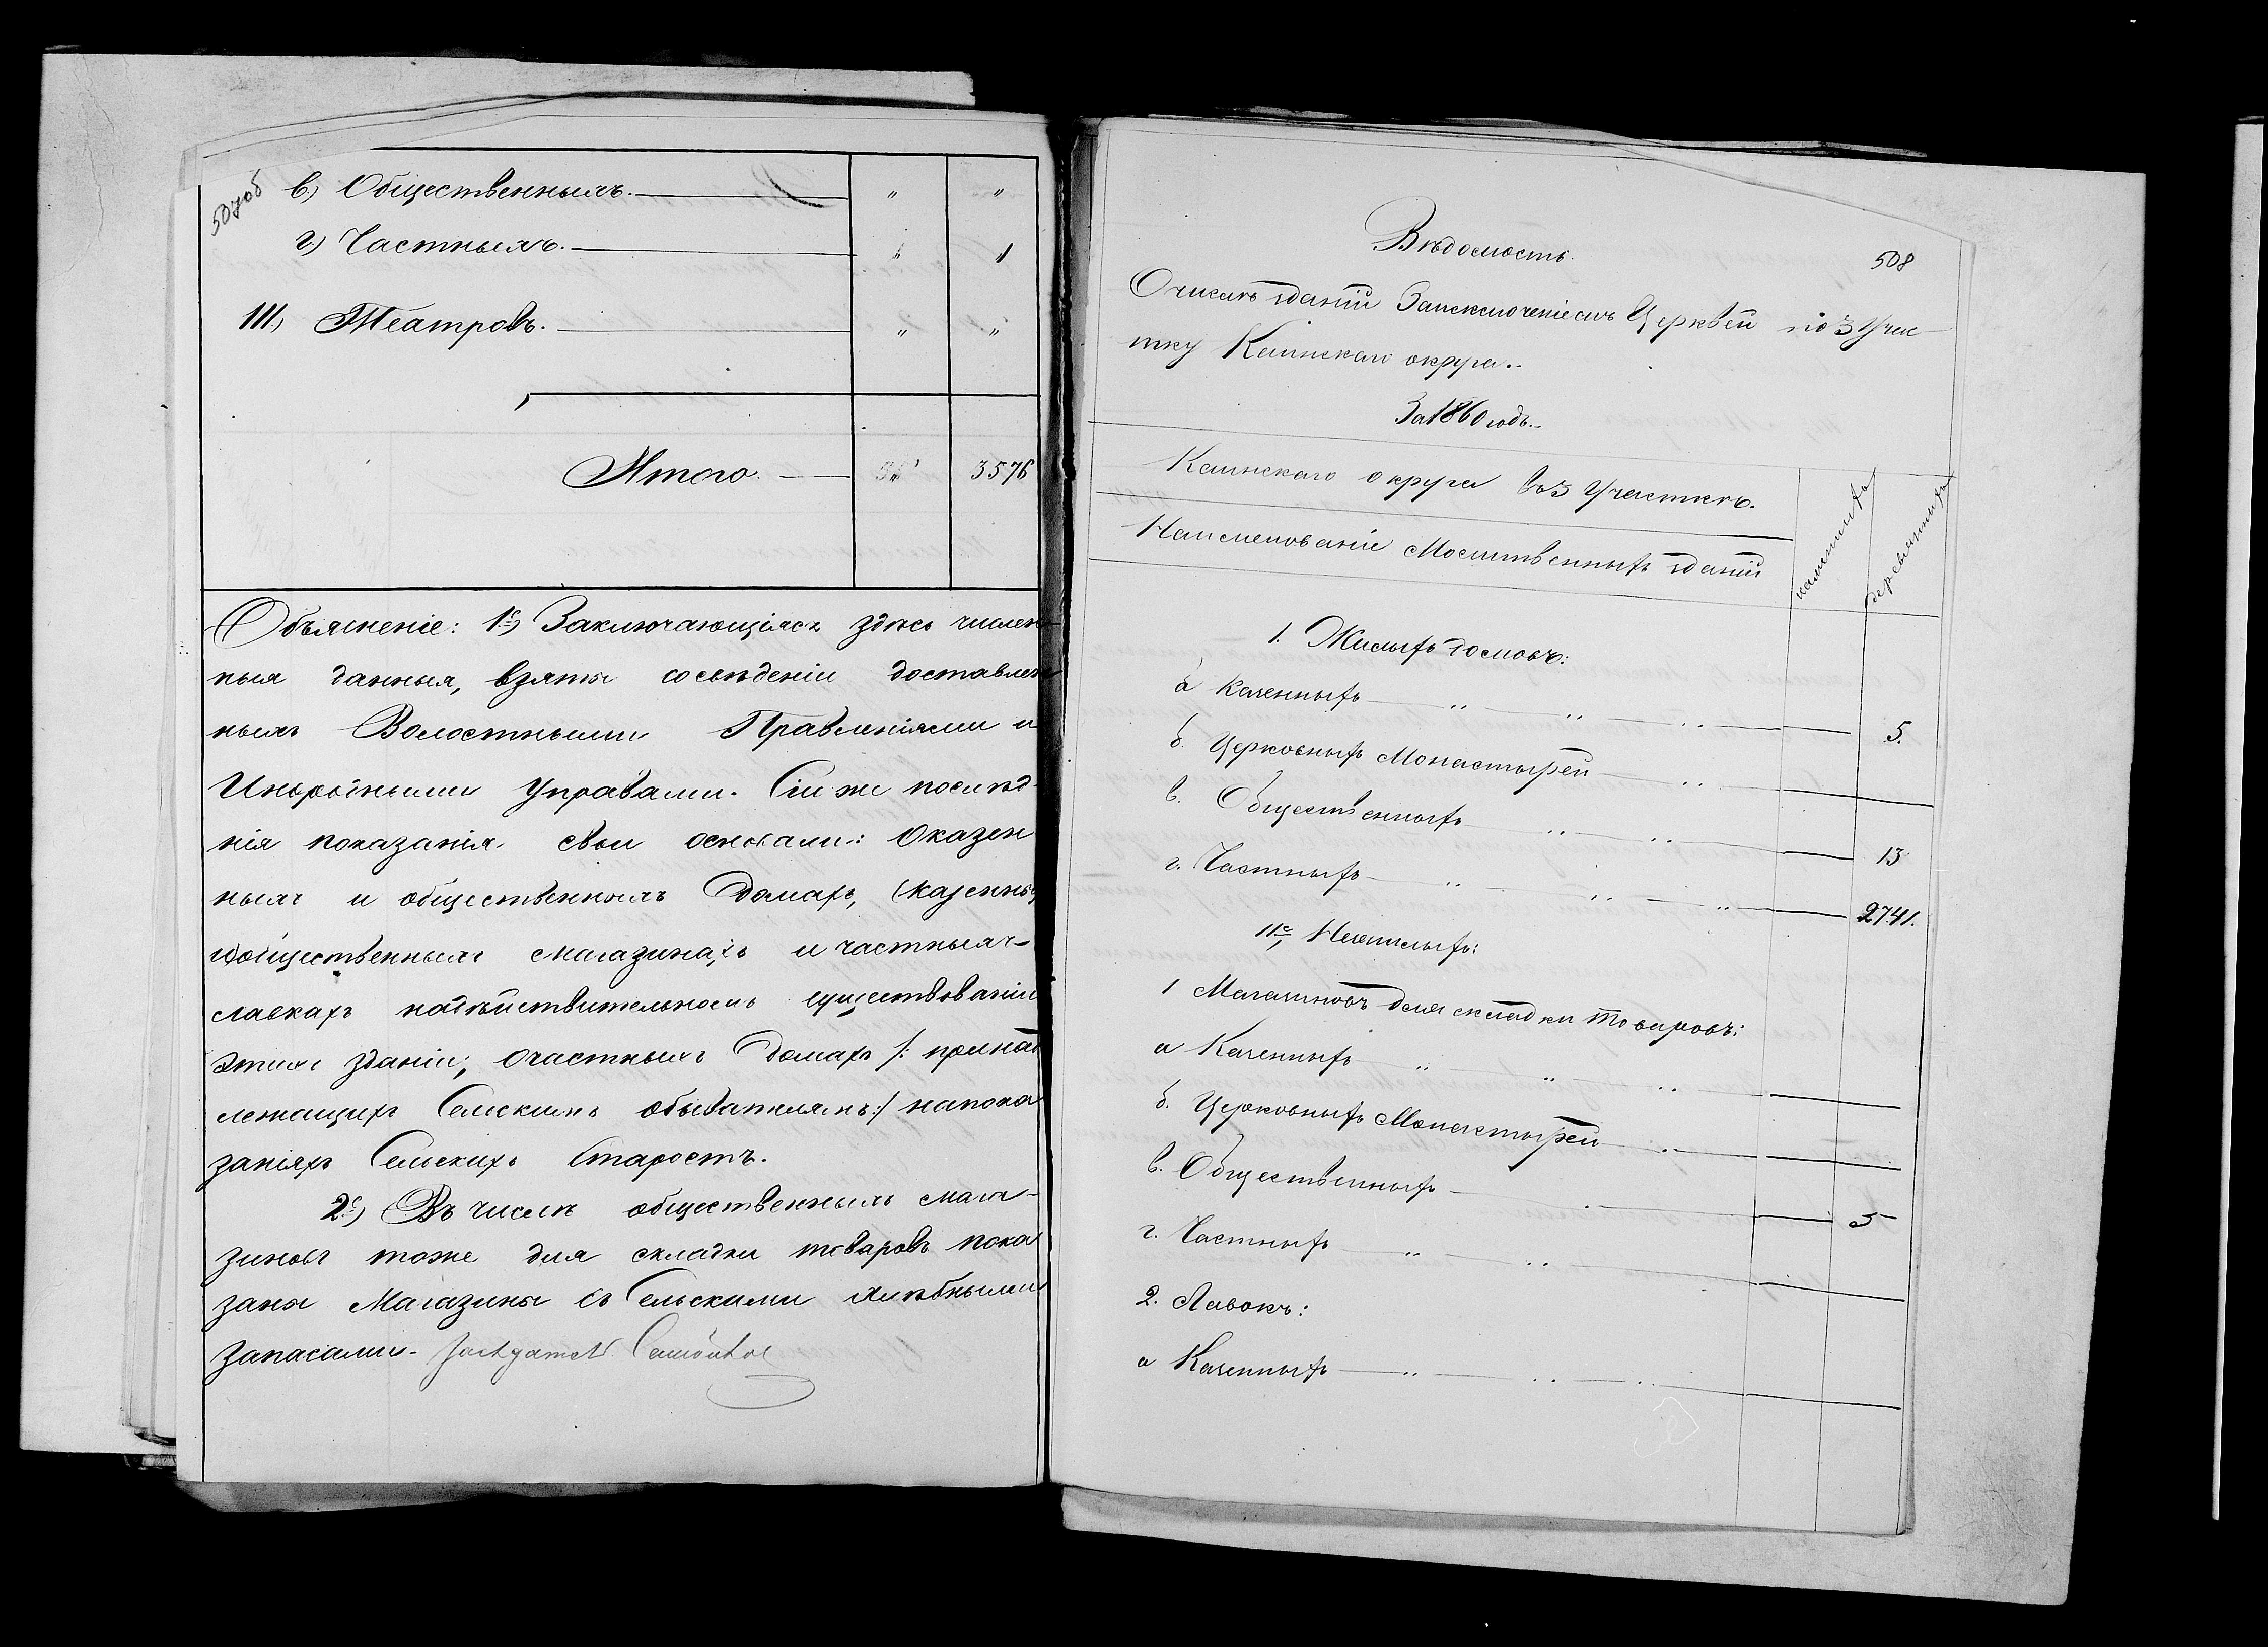 507об
в.) Общественныхъ. " "
г.) Частныхъ. " "
III.) Театровъ. " "
Итого. 3576
Объясненіе: 1е) Заключающіяся здѣсь числен-
ныя данныя, взяты со свѣденіи доставлен
ныхъ Волостными Правленіями и
Инородными Управами. Сіи же послѣд-
нія показанія свои основали: О казен
ныхъ и общественныхъ домахъ, (казенны
и общественныхъ магазинахъ и частныхъ
лавкахъ на дѣйствительномъ существованіи
этихъ зданіи; о частныхъ домахъ /: принад
лежащихъ Сельскимъ обывателямъ :/ на пока
заніяхъ Сельскихъ Старостъ.
2е) Въ числѣ общественныхъ мага-
зиновъ тоже для складки товаровъ пока
заны Магазины съ Сельскими хлѣбными
запасами.
508
Вѣдомость.
О числѣ зданіи За исключеніемъ Церквей по 3 Учас
тку Каинскаго округа..
За 1860 годъ.
Каинскаго округа въ 3 Участкѣ.
каменныхъ
деревянныхъ
Наименованіе Мосшвенныхъ зданіи
1. Жилыхъ домовъ:
а Казенныхъ 5.
б. Церковныхъ Монастырей
в. Общественныхъ 13
г. Частныхъ 2741.
IIе, Нежилыхъ:
1 Магазиновъ для складки товаровъ:
а Казенныхъ
б. Церковныхъ Монастырей
в. Общественныхъ 5
г. Частныхъ
2. Лавокъ:
а Казенныхъ